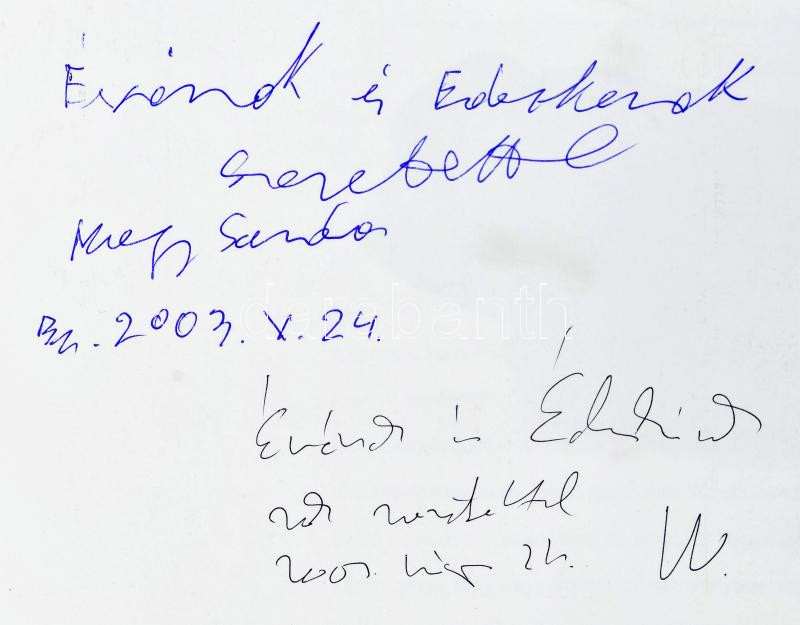 Évának és Édeskének
szeretettel
Nagy Sándor
darabanth
Bp. 2003. V. 24.
Évának és
sok szeretettel
2003. máj. 24.